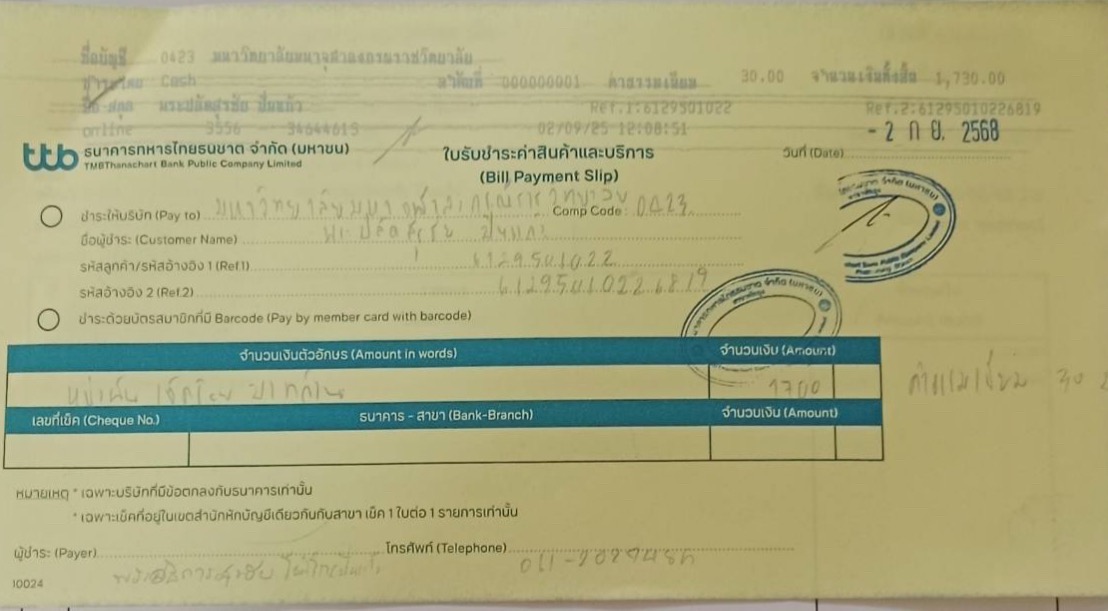 ชื่อบัญชี 0423 มหาวิทยาลัยมหาจุฬาลงกรณราชวิทยาลัย
ชำระโดย Cash ลำดับที่ 000000001 ค่าธรรมเนียม 30.00 จำนวนเงินทั้งสิ้น 1,730.00
ชื่อ-สกุล พระปลัดสุรชัย ปิ่นแก้ว Ref.1:6129501022 Ref.2:61295010226819
online 3556 02/09/25 12:08:51
- 2 ก.ย. 2568
ttb ธนาคารทหารไทยธนชาต จำกัด (มหาชน)
TMBThanachart Bank Public Company Limited
ใบรับชำระค่าสินค้าและบริการ
(Bill Payment Slip)
วันที่ (Date)
ชำระให้บริษัท (Pay to) มหาวิทยาลัยมหาจุฬาลงกรณราชวิทยาลัย Comp Code : 0423
ชื่อผู้ชำระ (Customer Name) พระปลัดสุรชัย ปิ่นแก้ว
รหัสลูกค้า/รหัสอ้างอิง 1 (Ref.1) 6129501022
รหัสอ้างอิง 2 (Ref.2) 61295010226819
ชำระด้วยบัตรสมาชิกที่มี Barcode (Pay by member card with barcode)
จำนวนเงินตัวอักษร (Amount in words) จำนวนเงิน (Amount)
1700 ค่าธรรมเนียม 30
เลขที่เช็ค (Cheque No.) ธนาคาร - สาขา (Bank-Branch) จำนวนเงิน (Amount)
หมายเหตุ * เฉพาะบริษัทที่มีข้อตกลงกับธนาคารเท่านั้น
* เฉพาะเช็คที่อยู่ในเขตสำนักหักบัญชีเดียวกันกับสาขา เช็ค 1 ใบต่อ 1 รายการเท่านั้น
ผู้ชำระ (Payer) โทรศัพท์ (Telephone)
10024